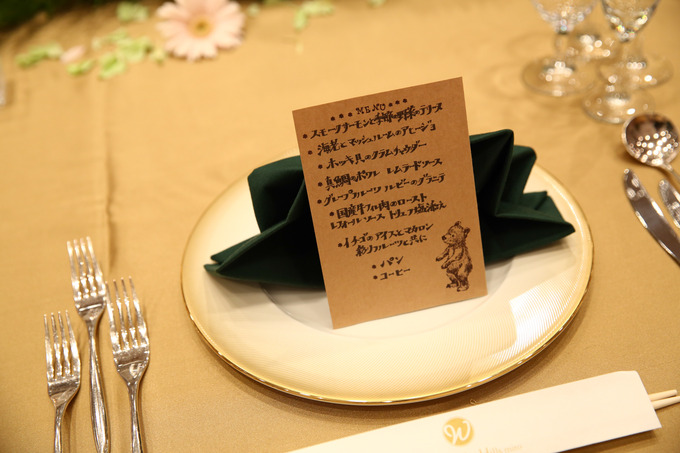 ••• MENU •••
• スモークサーモンと季節の野菜のテリーヌ
• 海老とマッシュルームのアヒージョ
• ホッキ貝のクラムチャウダー
• 真鯛のポワレ レムラードソース
• グレープフルーツ ルビーのグラニテ
• 国産牛フィレ肉のロースト
レフォールソース トリュフ塩添え
• イチゴのアイスとマカロン
彩りフルーツと共に
• パン
• コーヒー
W